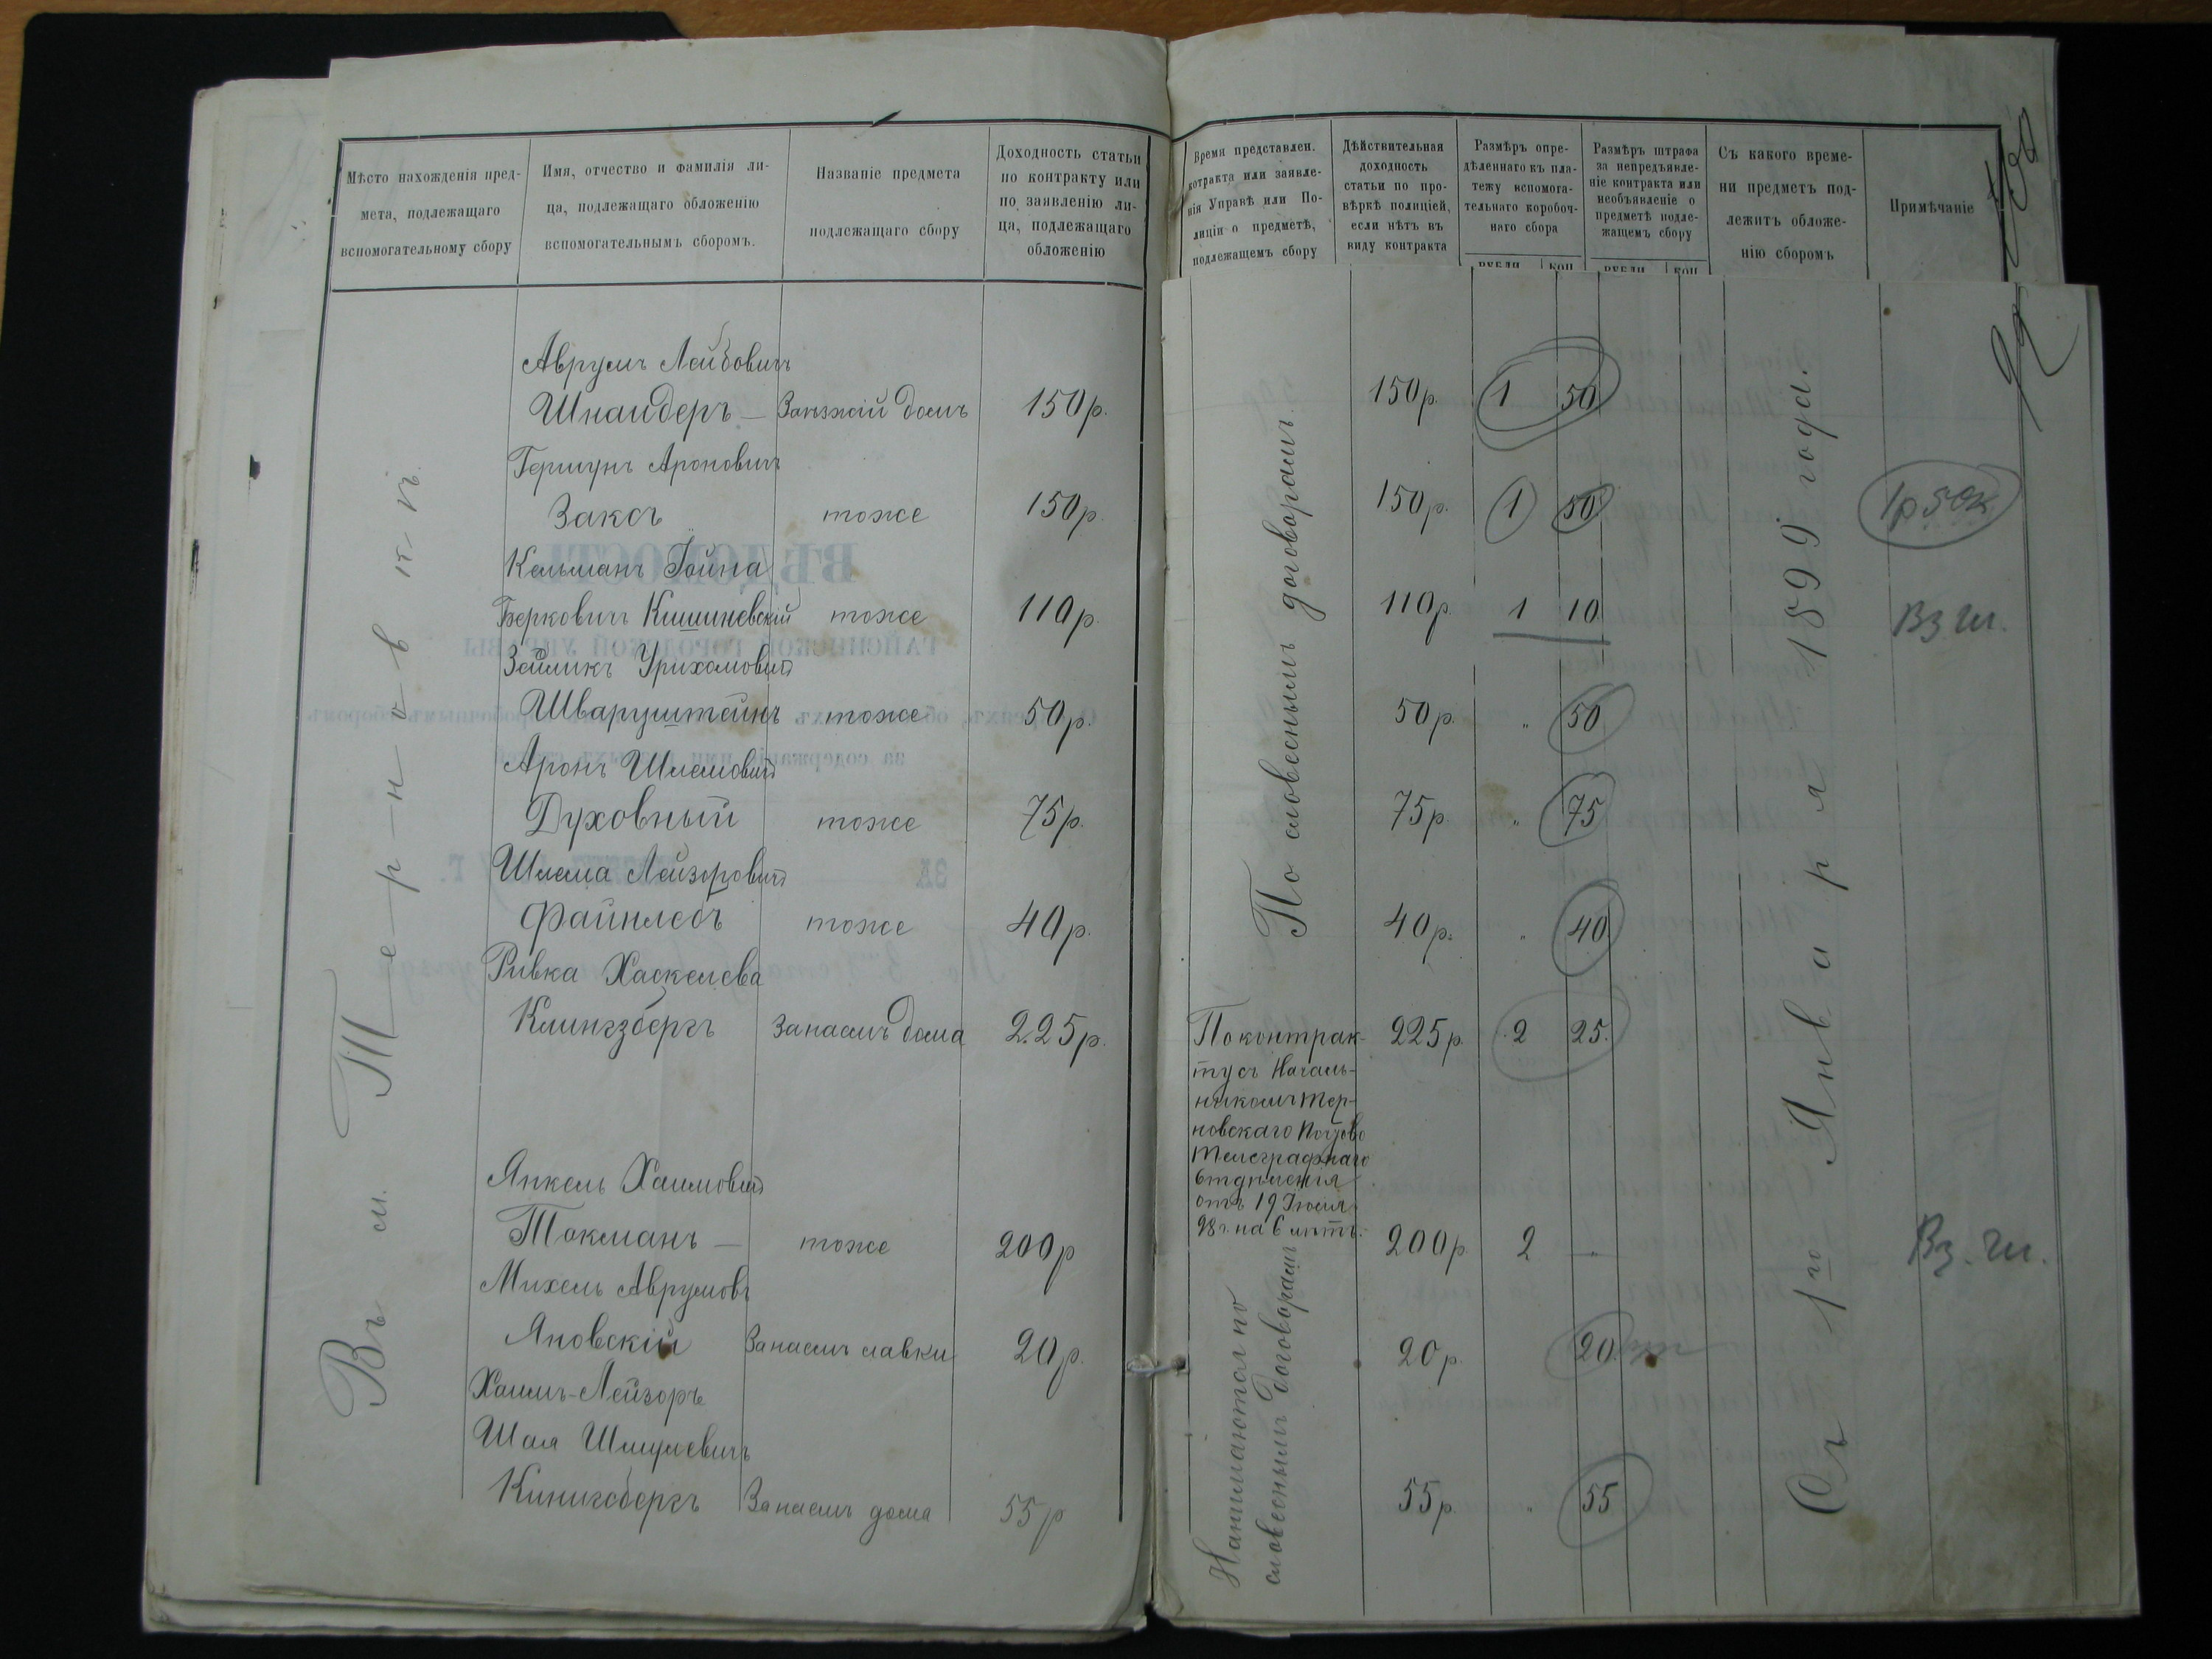 Мѣсто нахожденія пред-
мета, подлежащаго
вспомогательному сбору
Имя, отчество и фамилія ли-
ца, подлежащаго обложенію
вспомогательнымъ сборомъ.
Названіе предмета
подлежащаго сбору
Доходность статьи
по контракту или
по заявленію ли-
ца, подлежащаго
обложенію
Время представлен.
контракта или заявле-
нія Управѣ или По-
лиціи о предметѣ,
подлежащемъ сбору
Дѣйствительная
доходность
статьи по про-
вѣркѣ полиціей,
если нѣтъ въ
виду контракта
Размѣръ опре-
дѣленнаго къ пла-
тежу вспомога-
тельнаго коробоч-
наго сбора
РУБЛИ КОП
Размѣръ штрафа
за непредъявле-
ніе контракта или
необъявленіе о
предметѣ подле-
жащемъ сбору
РУБЛИ КОП
Съ какого време-
ни предметъ под-
лежитъ обложе-
нію сборомъ
Примѣчаніе
Въ м. Терновкѣ
Аврумъ Лейбовичъ
Шнайдеръ — Заѣзжій домъ 150р. 150р. 1 50
Гершунъ Ароновичъ
Заксъ тоже 150р. 150р. 1 50 1р 50к
Кельманъ Іойна
Берковичъ Кишиневскій тоже 110р. 110р. 1 10 Вз. ш.
Зейликъ
Шварцштейнъ тоже 50р. 50р. „ 50
Аронъ Шлемовичъ
Духовный тоже 75р. 75р. „ 75
Шлема Лейзоровичъ
Файнлебъ тоже 40р. 40р. „ 40
Ривка Хаскелева
Клингзбергъ За наемъ дома 225р. 225р. 2 25.
По контрак-
ту съ Началь-
никомъ Тер-
новскаго Почтово
Телеграфнаго
Отдѣленія
отъ 19 Іюля
98 г. на 6 лѣтъ.
Янкель Хаимовичъ
Токманъ — тоже 200р 200р. 2 „ Вз. ш.
Михель Аврумовъ
Яновскій За наемъ лавки 20р. 20р. 20.
Хаимъ-Лейзоръ
Шая Шмулевичъ
Кинигсбергъ За наемъ дома 55р 55р. „ 55
По словеснымъ договорамъ.
Нанимаются по
словеснымъ договорамъ
Съ 1го Января 1899 года.